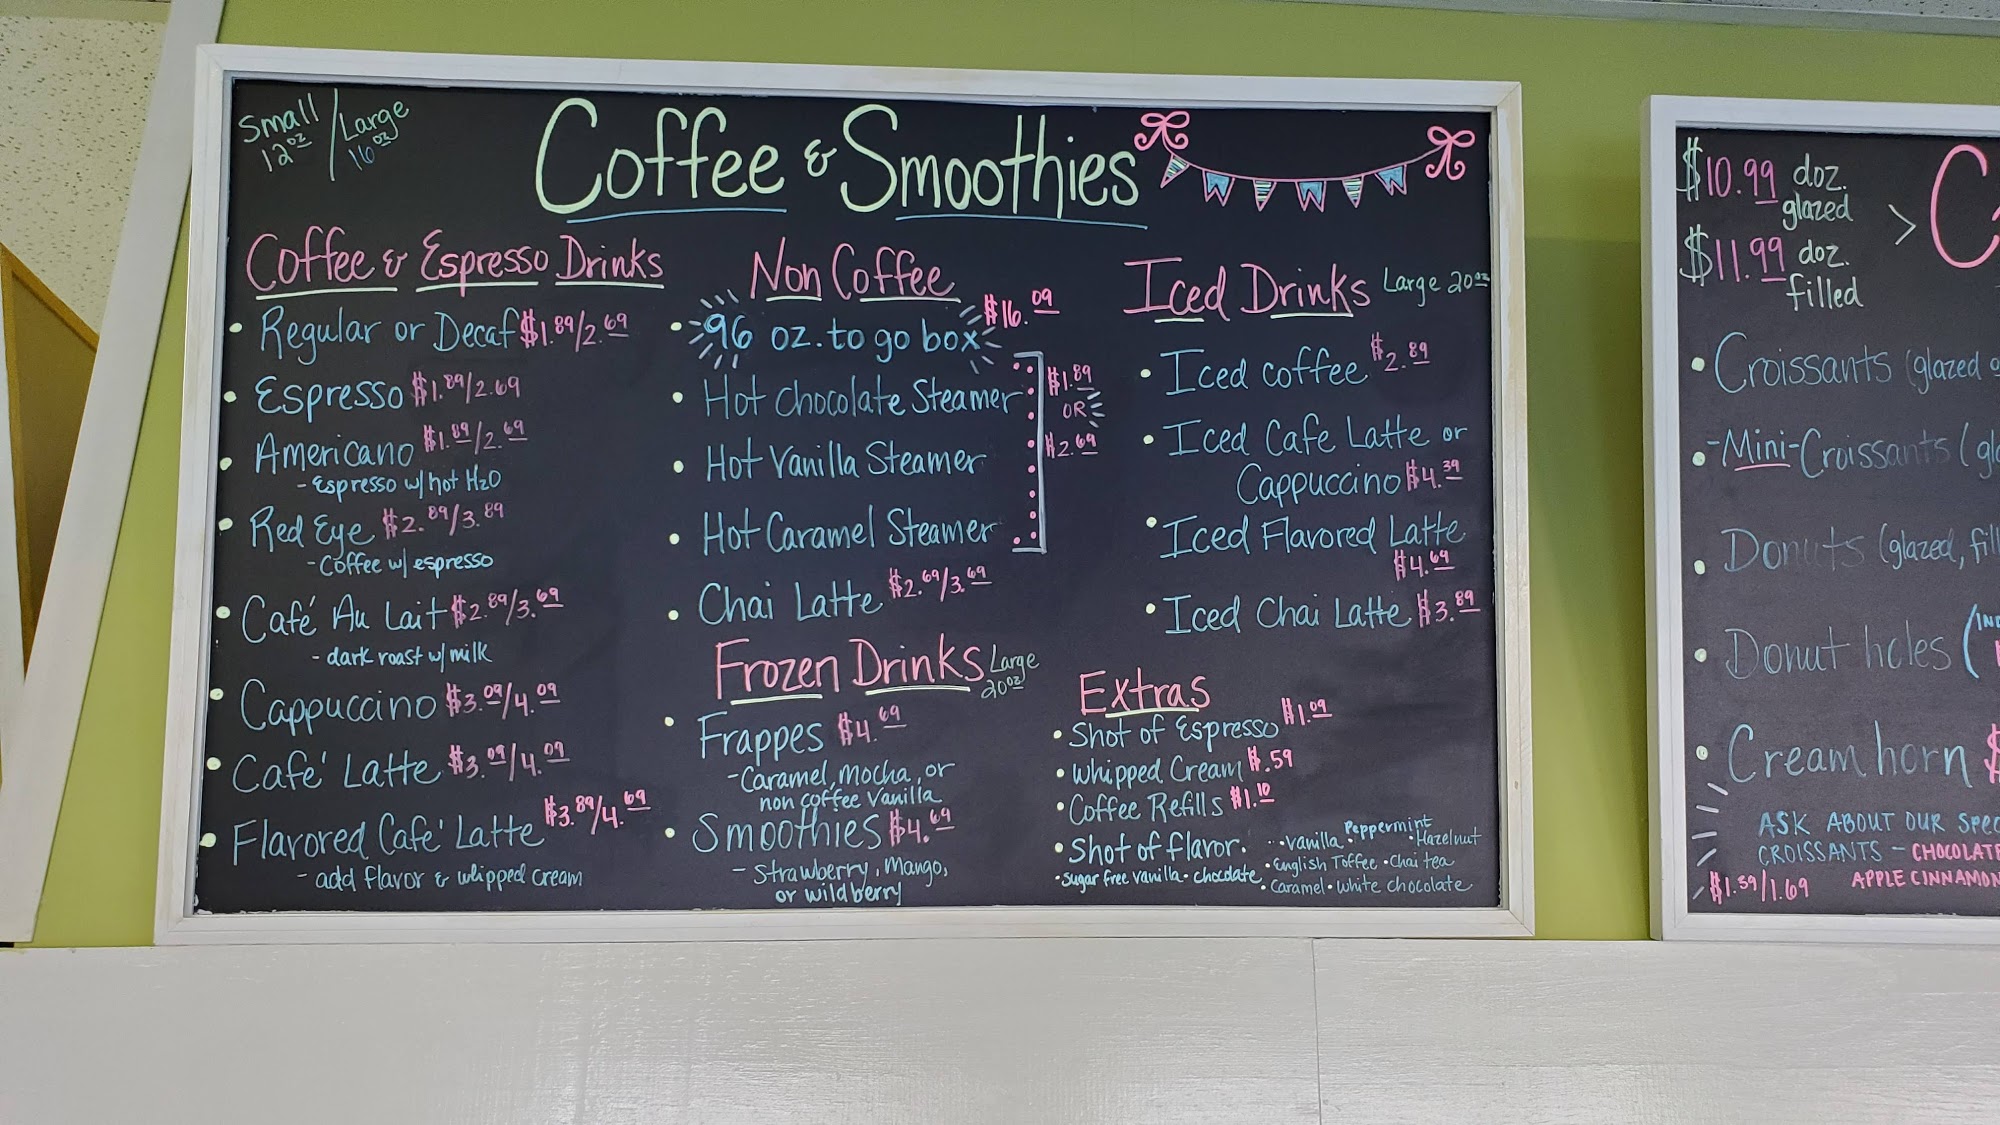 Small 12oz / Large 16oz
Coffee & Smoothies
Coffee & Espresso Drinks
• Regular or Decaf $1.89/2.69
• Espresso $1.89/2.69
• Americano $1.89/2.69
- Espresso w/ hot H2O
• Red Eye $2.89/3.89
- Coffee w/ espresso
• Café Au Lait $2.89/3.69
- dark roast w/ milk
• Cappuccino $3.09/4.09
• Café Latte $3.09/4.09
• Flavored Café Latte $3.89/4.69
- add flavor & whipped cream
Non Coffee
• 96 oz. to go box $16.09
• Hot Chocolate Steamer
• Hot Vanilla Steamer
• Hot Caramel Steamer
$1.89
OR
$2.69
• Chai Latte $2.69/3.69
Frozen Drinks Large 20oz
• Frappes $4.69
- Caramel, Mocha, or
non coffee Vanilla
• Smoothies $4.69
- Strawberry, Mango,
or wild berry
Iced Drinks Large 20oz
• Iced coffee $2.89
• Iced Cafe Latte or
Cappuccino $4.39
• Iced Flavored Latte
$4.69
• Iced Chai Latte $3.89
Extras
• Shot of Espresso $1.09
• Whipped Cream $.59
• Coffee Refills $1.10
• Shot of flavor. • Vanilla • Peppermint • Hazelnut
• English Toffee • Chai tea
• Sugar free vanilla • chocolate • Caramel • White chocolate
$10.99 doz.
glazed
$11.99 doz.
filled
>
• Croissants (glazed
• -Mini-Croissants
• Donuts (glazed,
• Donut holes
• Cream horn $
ASK ABOUT OUR
CROISSANTS - CHOCOLATE
$1.39/1.69 APPLE CINNAMON